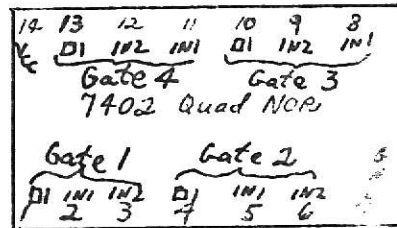 14 13 12 11 10 9 8
Vcc 01 IN2 IN1 01 IN2 IN1
Gate 4 Gate 3
7402 Quad NOR
Gate 1 Gate 2
01 IN1 IN2 01 IN1 IN2
1 2 3 4 5 6